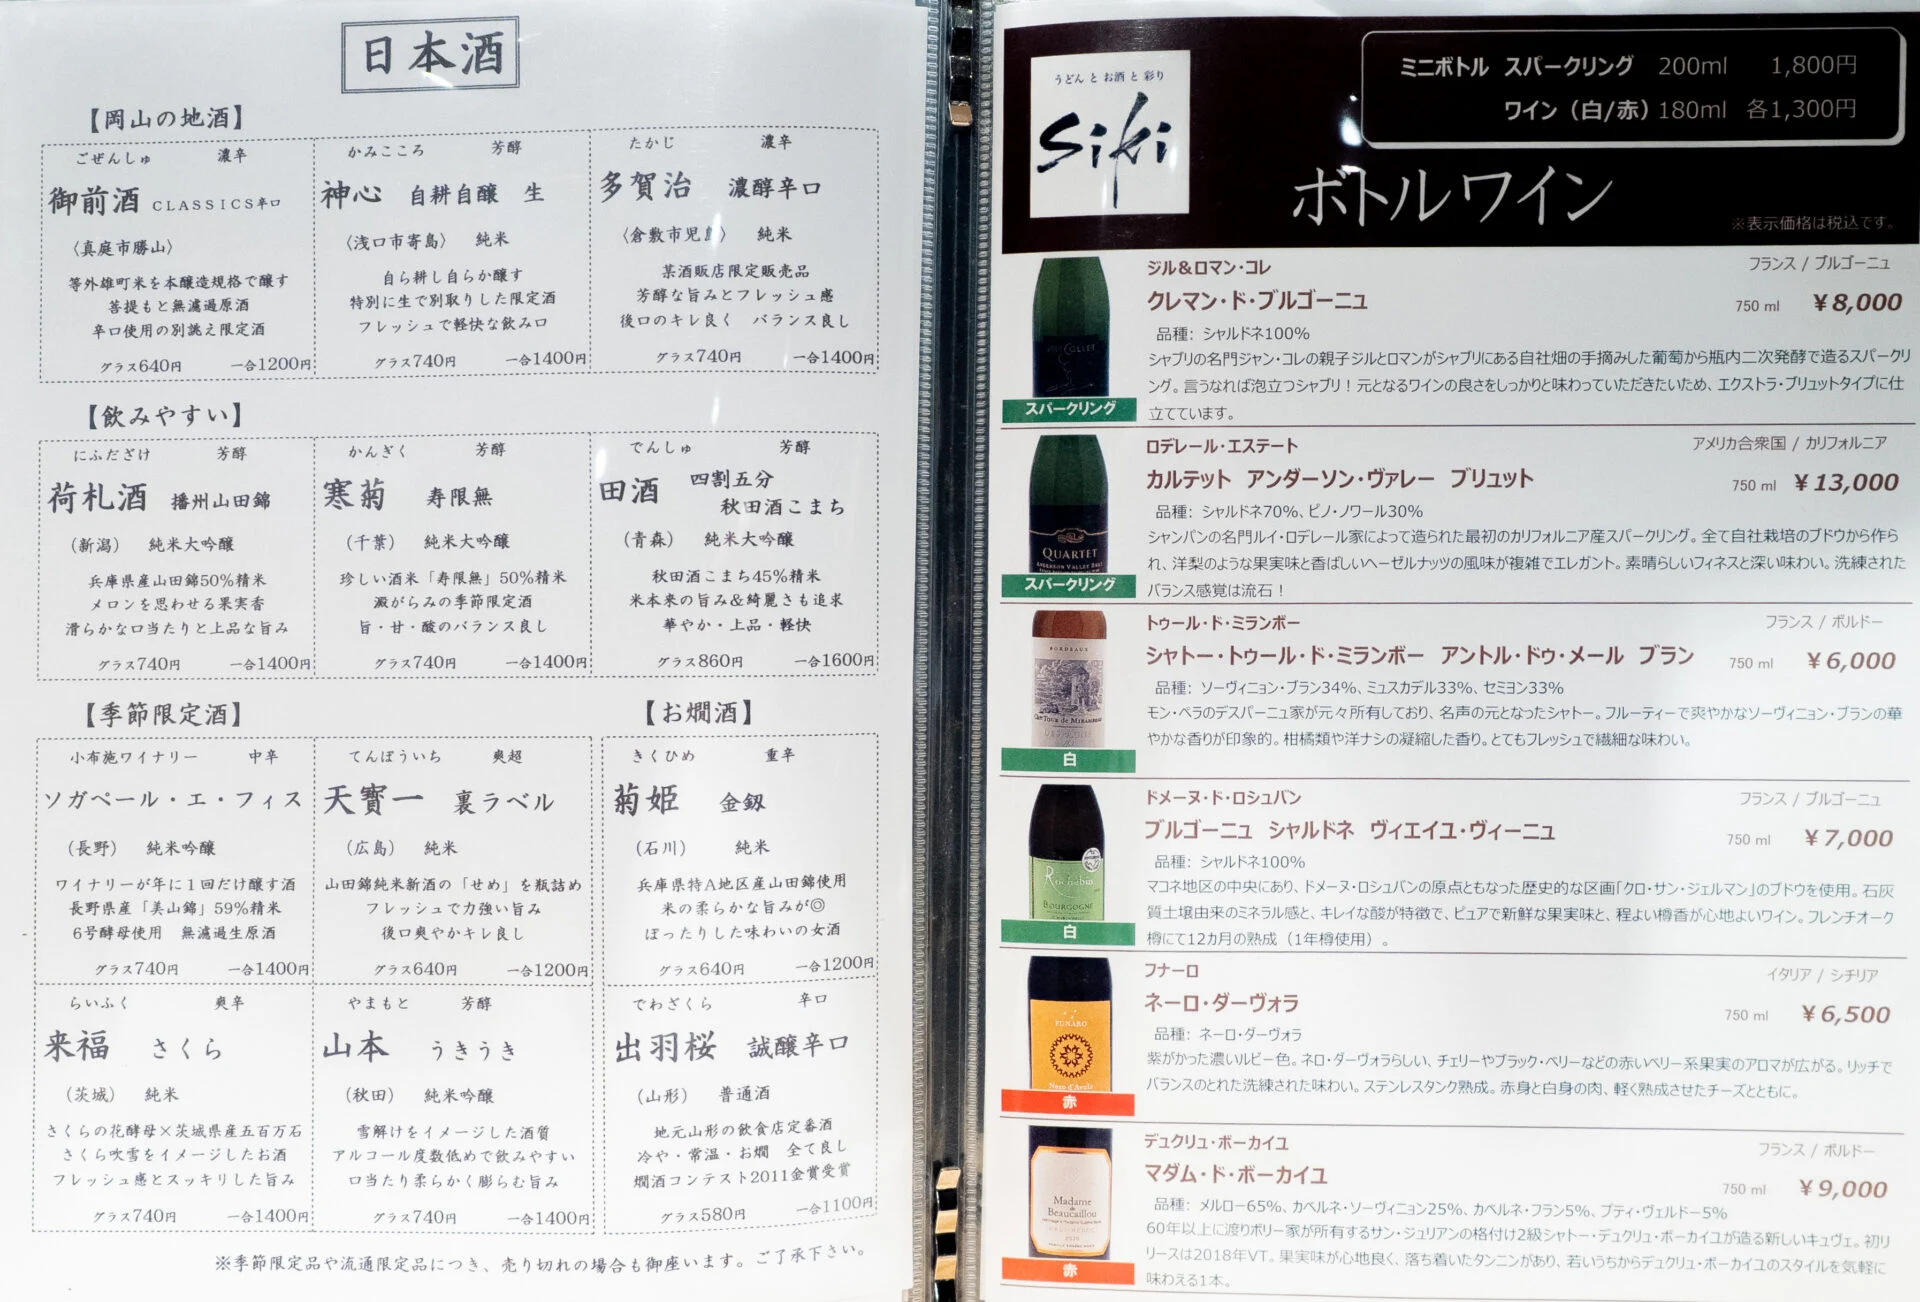 日本酒
【岡山の地酒】
ごぜんしゅ 濃辛
御前酒 CLASSICS辛口
〈真庭市勝山〉
等外雄町米を本醸造規格で醸す
菩提もと無濾過原酒
辛口使用の別誂え限定酒
グラス640円 一合1200円
かみこころ 芳醇
神心 自耕自醸 生
〈浅口市寄島〉 純米
自ら耕し自らか醸す
特別に生で別取りした限定酒
フレッシュで軽快な飲み口
グラス740円 一合1400円
たかじ 濃辛
多賀治 濃醇辛口
〈倉敷市児島〉 純米
某酒販店限定販売品
芳醇な旨みとフレッシュ感
後口のキレ良く バランス良し
グラス740円 一合1400円
【飲みやすい】
にふだざけ 芳醇
荷札酒 播州山田錦
(新潟) 純米大吟醸
兵庫県産山田錦50%精米
メロンを思わせる果実香
滑らかな口当たりと上品な旨み
グラス740円 一合1400円
かんぎく 芳醇
寒菊 寿限無
(千葉) 純米大吟醸
珍しい酒米「寿限無」50%精米
澱がらみの季節限定酒
旨・甘・酸のバランス良し
グラス740円 一合1400円
でんしゅ 芳醇
田酒 四割五分
秋田酒こまち
(青森) 純米大吟醸
秋田酒こまち45%精米
米本来の旨み&綺麗さも追求
華やか・上品・軽快
グラス860円 一合1600円
【季節限定酒】
小布施ワイナリー 中辛
ソガペール・エ・フィス
(長野) 純米吟醸
ワイナリーが年に1回だけ醸す酒
長野県産「美山錦」59%精米
6号酵母使用 無濾過生原酒
グラス740円 一合1400円
てんぽういち 爽超
天寳一 裏ラベル
(広島) 純米
山田錦純米新酒の「せめ」を瓶詰め
フレッシュで力強い旨み
後口爽やかキレ良し
グラス640円 一合1200円
【お燗酒】
きくひめ 重辛
菊姫 金剱
(石川) 純米
兵庫県特A地区産山田錦使用
米の柔らかな旨みが◎
ぽったりした味わいの女酒
グラス640円 一合1200円
らいふく 爽辛
来福 さくら
(茨城) 純米
さくらの花酵母×茨城県産五百万石
さくら吹雪をイメージしたお酒
フレッシュ感とスッキリした旨み
グラス740円 一合1400円
やまもと 芳醇
山本 うきうき
(秋田) 純米吟醸
雪解けをイメージした酒質
アルコール度数低めで飲みやすい
口当たり柔らかく膨らむ旨み
グラス740円 一合1400円
でわざくら 辛口
出羽桜 誠醸辛口
(山形) 普通酒
地元山形の飲食店定番酒
冷や・常温・お燗 全て良し
燗酒コンテスト2011金賞受賞
グラス580円 一合1100円
※季節限定品や流通限定品につき、売り切れの場合も御座います。ご了承下さい。
うどん と お酒 と 彩り
Siki
ミニボトル スパークリング 200ml 1,800円
ワイン（白/赤）180ml 各1,300円
ボトルワイン
※表示価格は税込です。
ジル&ロマン・コレ フランス / ブルゴーニュ
クレマン・ド・ブルゴーニュ 750 ml ¥8,000
品種: シャルドネ100%
シャブリの名門ジャン・コレの親子ジルとロマンがシャブリにある自社畑の手摘みした葡萄から瓶内二次発酵で造るスパークリ
ング。言うなれば泡立つシャブリ！元となるワインの良さをしっかりと味わっていただきたいため、エクストラ・ブリュットタイプに仕
立てています。
COLLET
スパークリング
ロデレール・エステート アメリカ合衆国 / カリフォルニア
カルテット アンダーソン・ヴァレー ブリュット 750 ml ¥13,000
品種: シャルドネ70%、ピノ・ノワール30%
シャンパンの名門ルイ・ロデレール家によって造られた最初のカリフォルニア産スパークリング。全て自社栽培のブドウから作ら
れ、洋梨のような果実味と香ばしいヘーゼルナッツの風味が複雑でエレガント。素晴らしいフィネスと深い味わい。洗練された
バランス感覚は流石！
QUARTET
ANDERSON VALLEY BRUT
スパークリング
トゥール・ド・ミランボー フランス / ボルドー
シャトー・トゥール・ド・ミランボー アントル・ドゥ・メール ブラン 750 ml ¥6,000
品種: ソーヴィニョン・ブラン34%、ミュスカデル33%、セミヨン33%
モン・ペラのデスパーニュ家が元々所有しており、名声の元となったシャトー。フルーティーで爽やかなソーヴィニョン・ブランの華
やかな香りが印象的。柑橘類や洋ナシの凝縮した香り。とてもフレッシュで繊細な味わい。
BORDEAUX
Tour de Mirambeau
白
ドメーヌ・ド・ロシュバン フランス / ブルゴーニュ
ブルゴーニュ シャルドネ ヴィエイユ・ヴィーニュ 750 ml ¥7,000
品種: シャルドネ100%
マコネ地区の中央にあり、ドメーヌ・ロシュバンの原点ともなった歴史的な区画「クロ・サン・ジェルマン」のブドウを使用。石灰
質土壌由来のミネラル感と、キレイな酸が特徴で、ピュアで新鮮な果実味と、程よい樽香が心地よいワイン。フレンチオーク
樽にて12カ月の熟成（1年樽使用）。
Rochebin
BOURGOGNE
白
フナーロ イタリア / シチリア
ネーロ・ダーヴォラ 750 ml ¥6,500
品種: ネーロ・ダーヴォラ
紫がかった濃いルビー色。ネロ・ダーヴォラらしい、チェリーやブラック・ベリーなどの赤いベリー系果実のアロマが広がる。リッチで
バランスのとれた洗練された味わい。ステンレスタンク熟成。赤身と白身の肉、軽く熟成させたチーズとともに。
FUNARO
Nero d'Avola
赤
デュクリュ・ボーカイユ フランス / ボルドー
マダム・ド・ボーカイユ 750 ml ¥9,000
品種: メルロー65%、カベルネ・ソーヴィニヨン25%、カベルネ・フラン5%、プティ・ヴェルドー5%
60年以上に渡りボリー家が所有するサン・ジュリアンの格付け2級シャトー・デュクリュ・ボーカイユが造る新しいキュヴェ。初リ
リースは2018年VT。果実味が心地良く、落ち着いたタンニンがあり、若いうちからデュクリュ・ボーカイユのスタイルを気軽に
味わえる1本。
Madame
de
Beaucaillou
赤